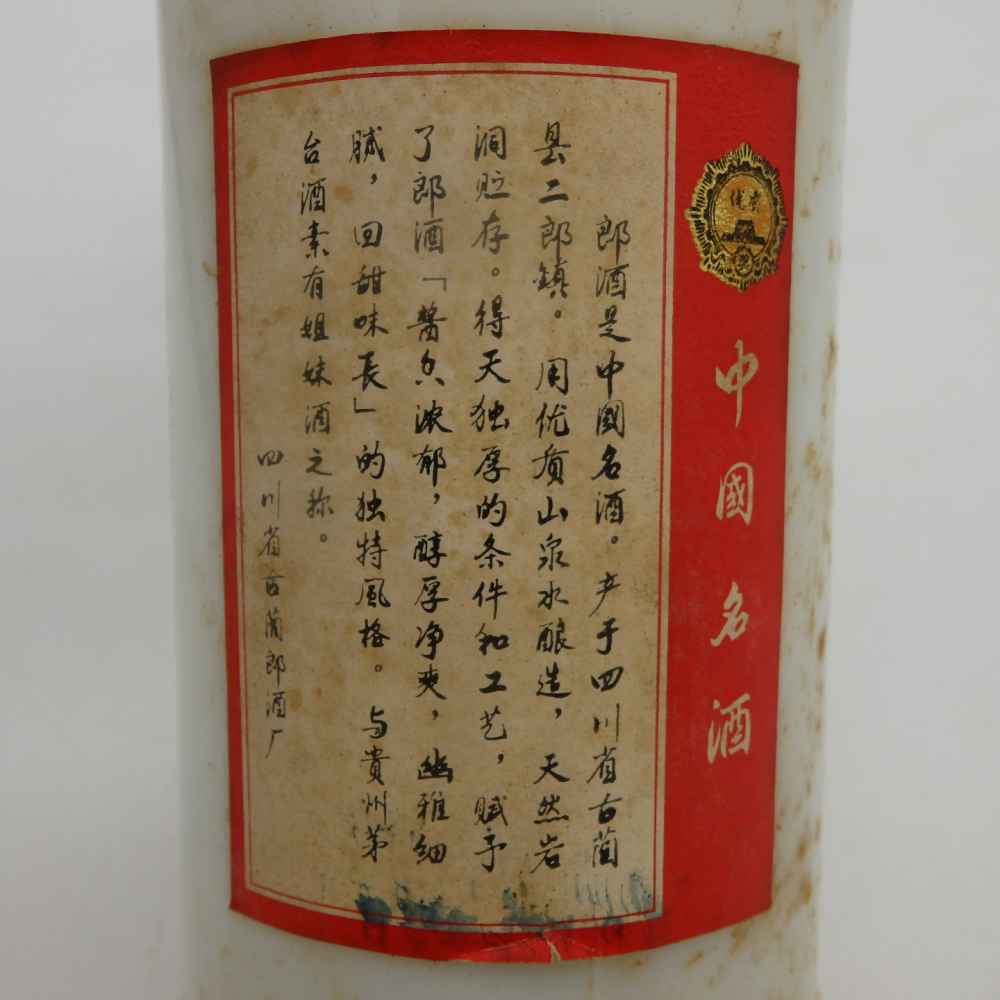 中國名酒
优质
郎酒是中國名酒。产于四川省古蔺
县二郎鎮。用优质山泉水酿造，天然岩
洞贮存。得天独厚的条件和工艺，赋予
了郎酒「醬香浓郁，醇厚净爽，幽雅细
腻，回甜味長」的独特風格。与貴州茅
台酒素有姐妹酒之称。
四川省古蔺郎酒厂